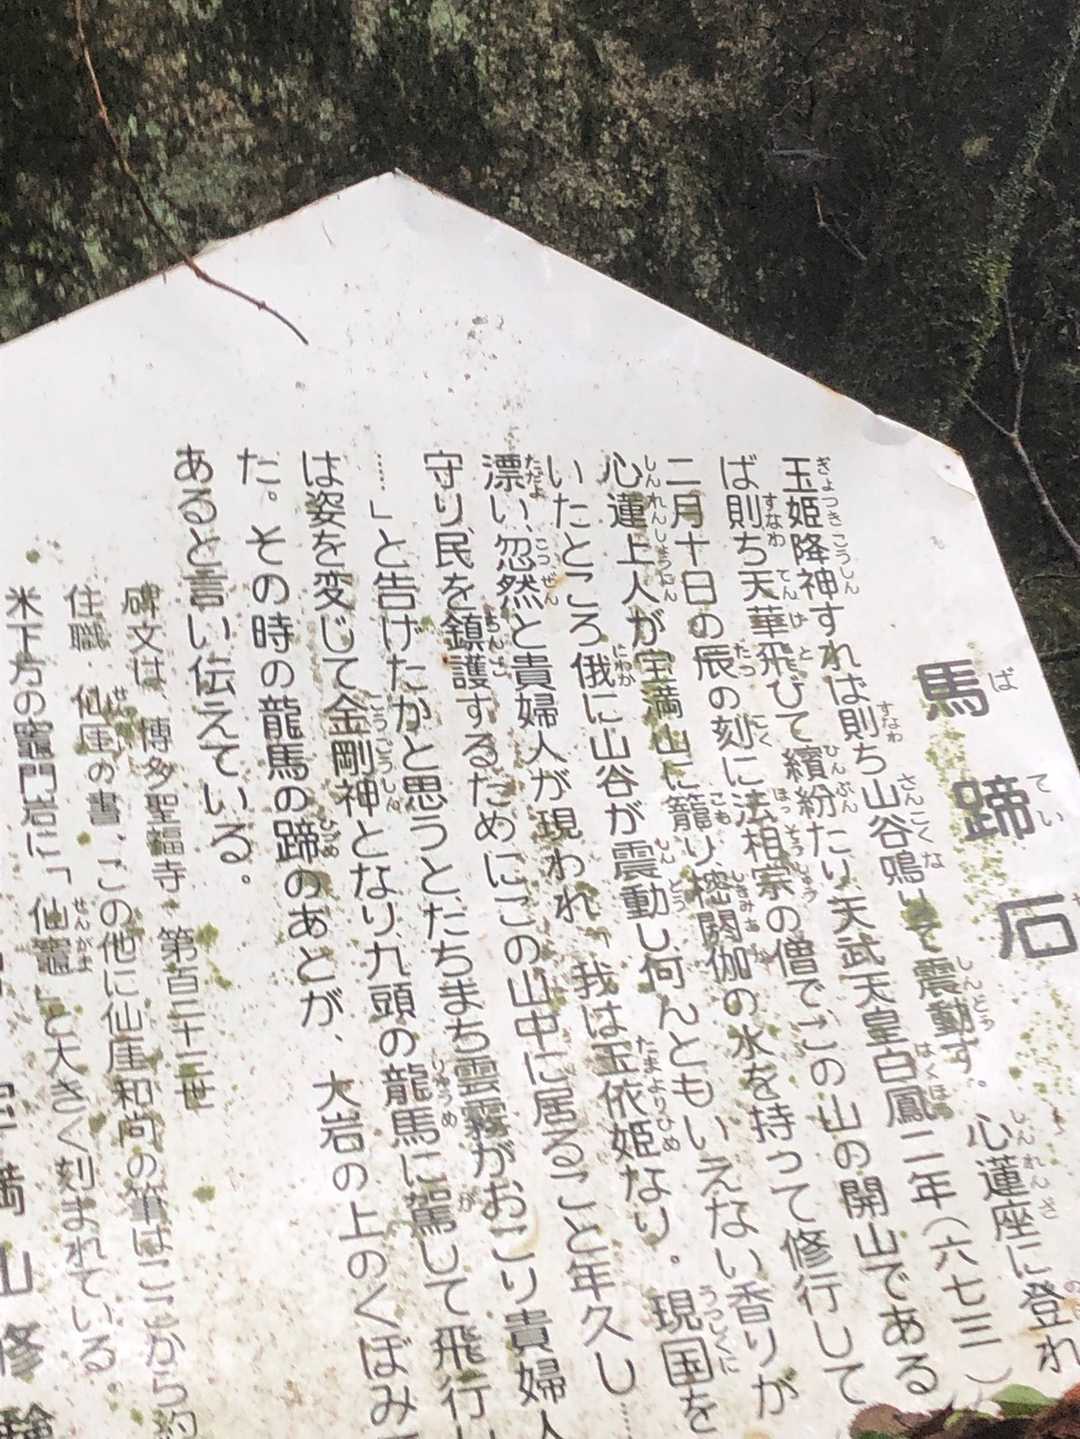 馬蹄石
玉姫降神すれば則ち山谷鳴いて震動す。心蓮座に登れ
ば則ち天華飛びて繽紛たり、天武天皇白鳳二年(六七三)
二月十日の辰の刻に法相宗の僧でこの山の開山である
心蓮上人が宝満山に籠り、樒閼伽の水を持って修行して
いたところ俄に山谷が震動し何んともいえない香りが
漂い、忽然と貴婦人が現われ「我は玉依姫なり。現国を
守り、民を鎮護するためにこの山中に居ること年久し……
……」と告げたかと思うと、たちまち雲霧がおこり貴婦人
は姿を変じて金剛神となり、九頭の龍馬に駕して飛行し
た。その時の龍馬の蹄のあとが、大岩の上のくぼみ
あると言い伝えている。
碑文は、博多聖福寺 第百二十三世
住職・仙厓の書、この他に仙厓和尚の筆はここから約
米下方の竈門岩に「仙竈」と大きく刻まれている
満山修験